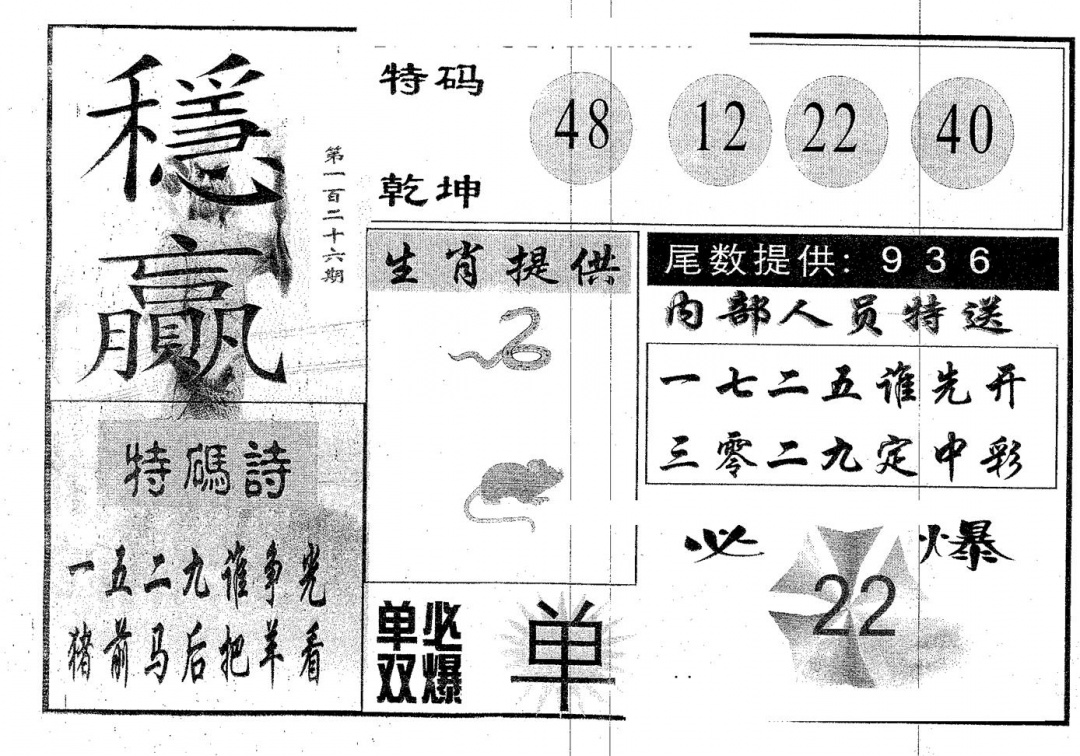 穩贏
第一百二十六期
特码
乾坤
48 12 22 40
生肖提供
尾数提供: 936
内部人员特送
一七二五谁先开
三零二九定中彩
特碼詩
一五二九谁争光
猪前马后把羊看
单双
必爆
单
必爆
22